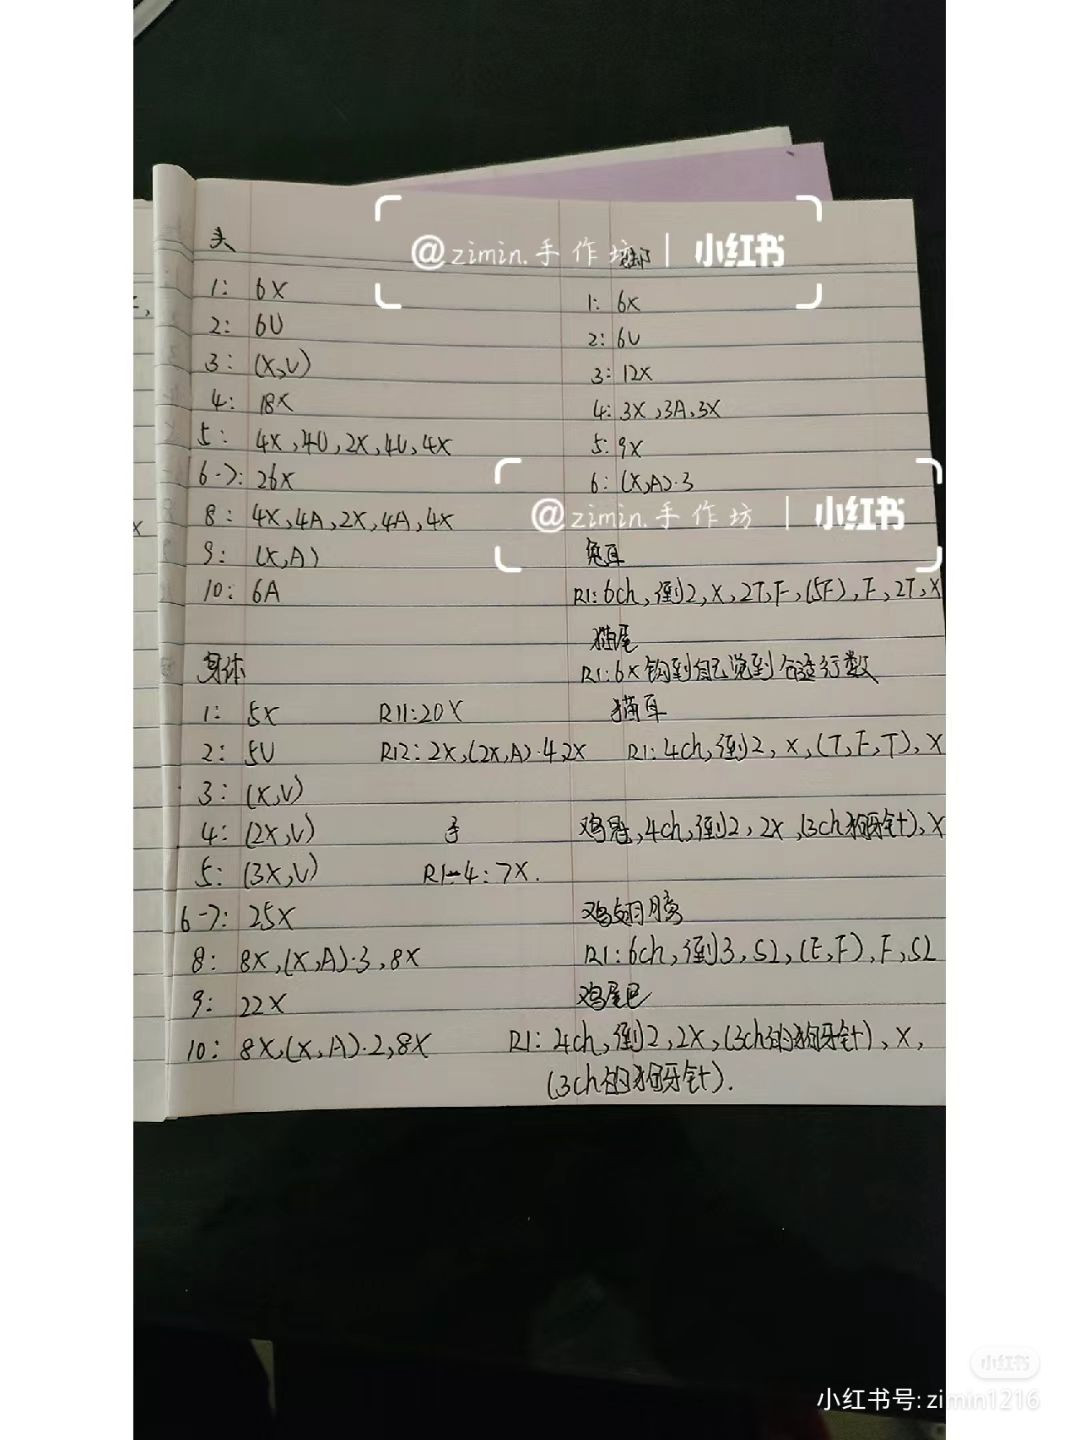 @zimin.手作坊 | 小红书
头
1: 6X
2: 6U
3: (X,V)
4: 18X
5: 4X,4U,2X,4U,4X
6-7: 26X
8: 4X,4A,2X,4A,4X
9: (X,A)
10: 6A
身体
1: 5X
2: 5U
3: (X,V)
4: (2X,V)
5: (3X,V)
6-7: 25X
8: 8X,(X,A)·3,8X
9: 22X
10: 8X,(X,A)·2,8X
R11:20X
R12: 2X,(2X,A)·4,2X
手
R1-4: 7X.
脚
1: 6X
2: 6U
3: 12X
4: 3X,3A,3X
5: 9X
6: (X,A)·3
@zimin.手作坊 | 小红书
兔耳
R1: 6ch, 倒2, X, 2T, F, (5F), F, 2T, X
猫尾
R1: 6X 钩到自己觉到合适行数
猫耳
R1: 4ch, 倒2, X, (T, F, T), X
鸡冠, 4ch, 倒2, 2X, (3ch狗牙针), X
鸡翅膀
R1: 6ch, 倒3, SL, (E, F), F, SL
鸡尾巴
R1: 4ch, 倒2, 2X, (3ch的狗牙针), X,
(3ch的狗牙针).
小红书
小红书号: zimin1216